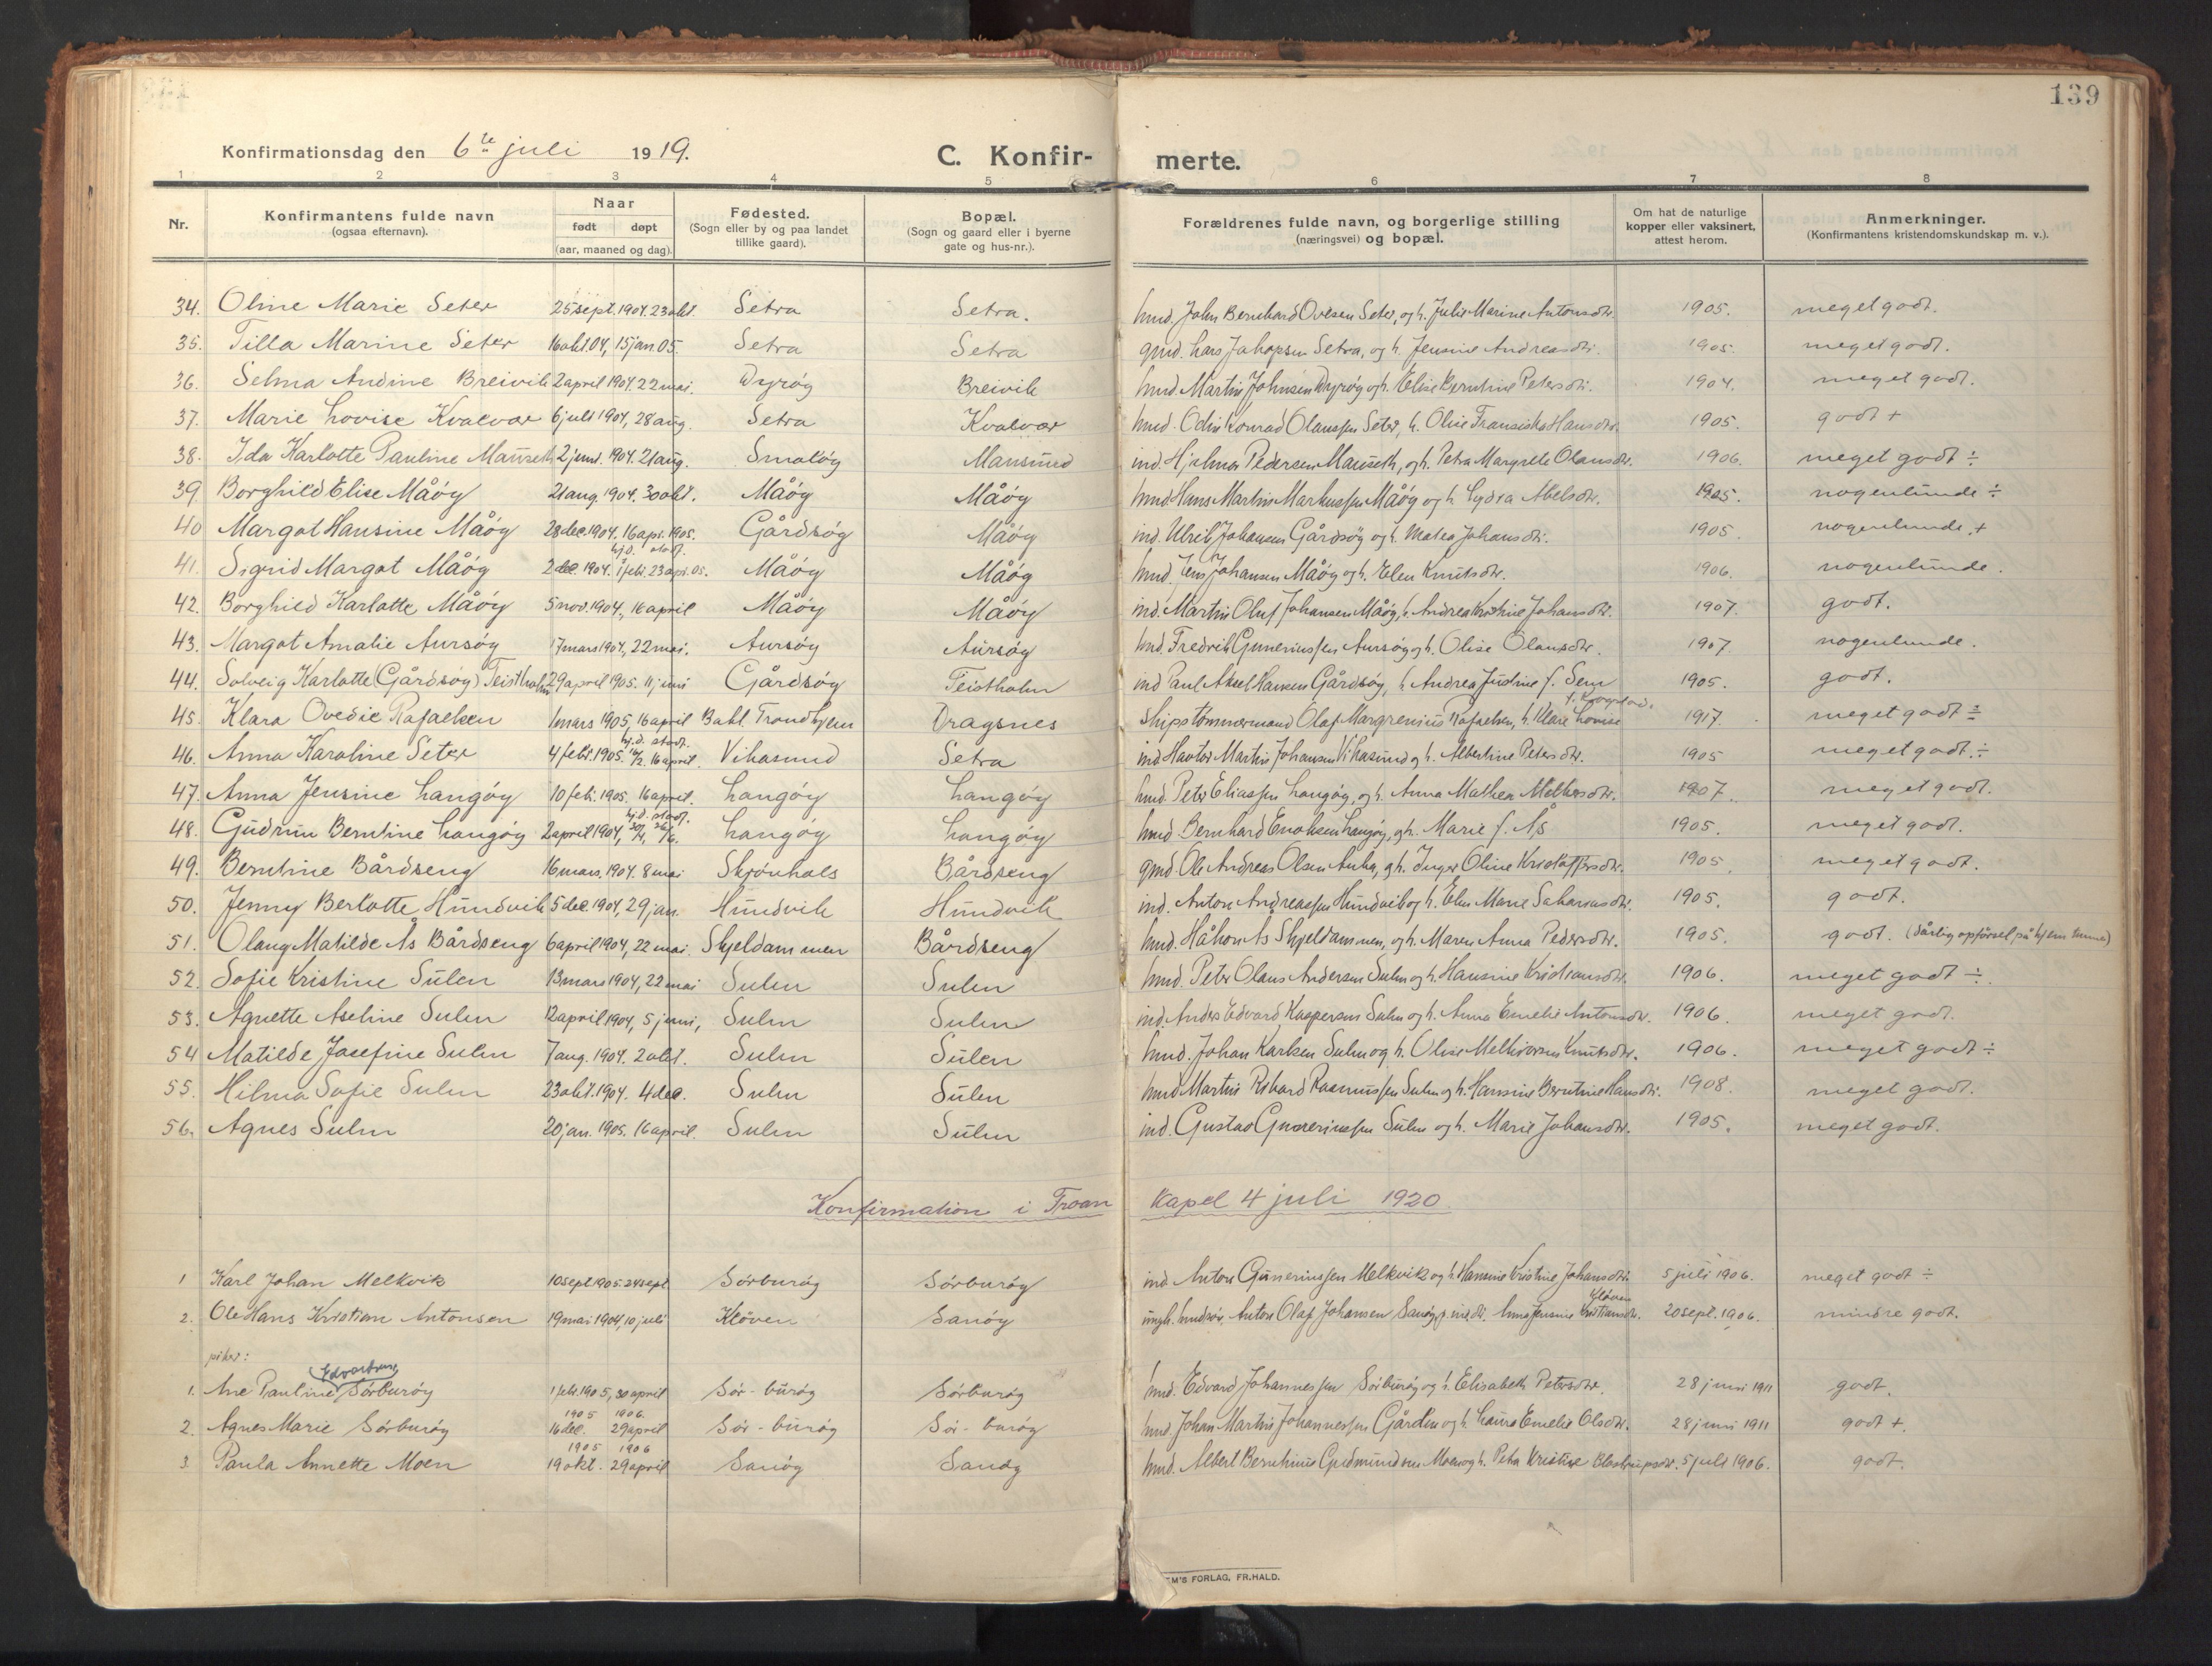 139
Konfirmationsdag den 6te juli 1919.
C. Konfirmerte.
1 2 3 4 5 6 7 8
Nr. Konfirmantens fulde navn (ogsaa efternavn). Naar født døpt (aar, maaned og dag). Fødested. (Sogn eller by og paa landet tillike gaard). Bopæl. (Sogn og gaard eller i byerne gate og hus-nr.). Forældrenes fulde navn, og borgerlige stilling (næringsvei) og bopæl. Om hat de naturlige kopper eller vaksinert, attest herom. Anmerkninger. (Konfirmantens kristendomskundskap m. v.).
34. Oline Marie Seter 25 sept. 1904. 23 okt. Setra Setra. hmd. John Bernhard Ovesen Seter, og h. Julie Marine Antonsdtr. 1905. meget godt.
35. Tilla Marine Seter 16 okt. 04, 15 jan. 05. Setra Setra gmd. Lars Jakopsen Setra, og h. Jensine Andreasdtr. 1905. meget godt.
36. Selma Andine Breivik 2 april 1904. 22 mai. Dyrøy Breivik hmd. Martin Johnsen Dyrøy og h. Elise Berntine Petersdtr. 1904. meget godt.
37. Marie Lovise Kvalvær 6 juli 1904, 28 aug. Setra Kvalvær hmd. Odin Konrad Olaussen Seter, h. Oline Fransiska Hansdtr. 1905. godt +
38. Ida Karlotte Pauline Mauseth 2 juni. 1904. 21 aug. Smaløy Mausund ind. Hjalmar Pedersen Mauseth, og h. Petra Margrete Olausdtr. 1906. meget godt ÷
39 Borghild Elise Måøy 21 aug. 1904. 30 okt. Måøy Måøy hmd Hans Martin Markussen Måøy og h. Lydia Abelsdtr. 1905. nogenlunde ÷
40 Margot Hansine Måøy 28 dec. 1904. 16 apr. 1905. Gårdsøy Måøy ind. Ulrik Johansen Gårdsøy og h. Matea Johansdtr. 1905. nogenlunde +
41. Sigrid Margot Måøy 2 dec. 1904. hj.d. 1 feb. stadf. 23 apr. 05. Måøy Måøy hmd. Jens Johansen Måøy og h. Elen Knutsdtr. 1906. nogenlunde.
42. Borghild Karlotte Måøy 5 nov. 1904., 16 april Måøy Måøy ind. Martin Oluf Johansen Måøy, h. Andrea Kristine Johansdtr. 1907. godt.
43. Margot Amalie Aursøy 17 mars 1904, 22 mai. Aursøy Aursøy hmd. Fredrik Gunneriussen Aursøy og h. Olise Olausdtr. 1907. nogenlunde.
44. Solveig Karlotte (Gårdsøy) Teistholm 29 april 1905. 11 juni Gårdsøy Teistholm ind Paul Aksel Hansen Gårdsøy, h. Andrea Justine f. Sem 1905. godt.
45. Klara Ovedie Rafaelsen 1 mars 1905, 16 april Bakl. Trondhjem Dragsnes Skipstømmermand Olaf Margrenius Rafaelsen, h. Klara Lovise 1917. meget godt ÷
46. Anna Karoline Seter 4 febr. 1905. hj.d. stadf. 16 april. Vikasund Setra ind Martin Johansen Vikasund og h. Albertine Petersdtr. 1905 meget godt. ÷
47. Anna Jensine Langøy 10 feb. 1905. 16 april. Langøy Langøy hmd. Peter Eliassen Langøy, og h. Anna Mathea Mathiasdtr. 1907. meget godt.
48. Gudrun Berntine Langøy 2 april 1904, hj.d. 30/4, stadf. 26/6. Langøy Langøy hmd. Bernhard Enoksen Langøy, og h. Marie f. Ås 1905. meget godt.
49. Berntine Bårdseng 16 mars. 1904. 8 mai Skjønhals Bårdseng gmd. Ole Andreas Olsen Anka, og h. Inger Oline Kristoffersdtr. 1905 meget godt.
50. Jenny Berlotte Hundvik 5 dec. 1904, 29 jan. Hundvik Hundvik ind. Anton Andreassen Hundvik og h. Elen Marie Sakariasdtr. 1905. godt.
51. Olaug Matilde Ås Bårdseng 6 april 1904, 22 mai. Skjeldammen Bårdseng hmd. Håkon Ås Skjeldammen, og h. Maren Anna Pedersdtr. 1905. godt. (dårlig opførsel på hjem turene)
52. Sofie Kristine Sulen 13 mars 1904, 22 mai Sulen Sulen hmd. Peter Olaus Andersen Sulen og h. Hansine Kristiansdtr. 1906. meget godt ÷
53. Agnette Aseline Sulen 12 april 1904, 5 juni, Sulen Sulen ind. Anders Edvard Kaspersen Sulen og h. Anna Emelie Antonsdtr. 1906. meget godt.
54 Matilde Josefine Sulen 7 aug. 1904. 2 okt. Sulen Sulen hmd. Johan Karlsen Sulen og h. Olise Melkiorsen Knutsdtr. 1906. meget godt ÷
55. Hilma Sofie Sulen 23 okt. 1904. 4 dec. Sulen Sulen hmd Martin Rikard Rasmussen Sulen og h. Hansine Berntine Hansdtr. 1908. meget godt.
56. Agnes Sulen 20 jan. 1905. 16 april. Sulen Sulen ind. Gustav Gunneriussen Sulen og h. Marie Johansdtr. 1905. meget godt.
Konfirmation i Froan Kapel 4 juli 1920.
1 Karl Johan Melkvik 10 sept. 1905. 24 sept Sørburøy Sørburøy ind Anton Gunneriussen Melkvik og h. Hansine Kristine Johansdtr. 5 juli 1906. meget godt ÷
2. Ole Hans Kristian Antonsen 19 mai 1904, 10 juli Kløven Sauøy ungk. Anton Olaf Johansen Sauøy, p. ind.dtr. Anna Jensine Kristiansdtr. Kløven 20 sept. 1906. mindre godt.
piker:
1. Ane Pauline (Edvardsen) Sørburøy 1 feb. 1905, 30 april Sør-burøy Sørburøy hmd. Edvard Johannessen Sørburøy og h. Elisabeth Petersdtr. 28 juni 1911 godt.
2. Agnes Marie Sørburøy 1905 16 dec. 1906. 29 april Sør-burøy Sør-burøy hmd. Johan Martin Johannessen Gården og h. Laura Emelie Olsdtr. 28 juni 1911 godt +.
3. Paula Annette Moen 1905 19 okt. 1906 29 april Sauøy Sauøy hmd. Albert Berntinus Gudmundsen Moen og h. Petra Kristine 5 juli 1906. godt.
EM'S FORLAG, FR. HALD.